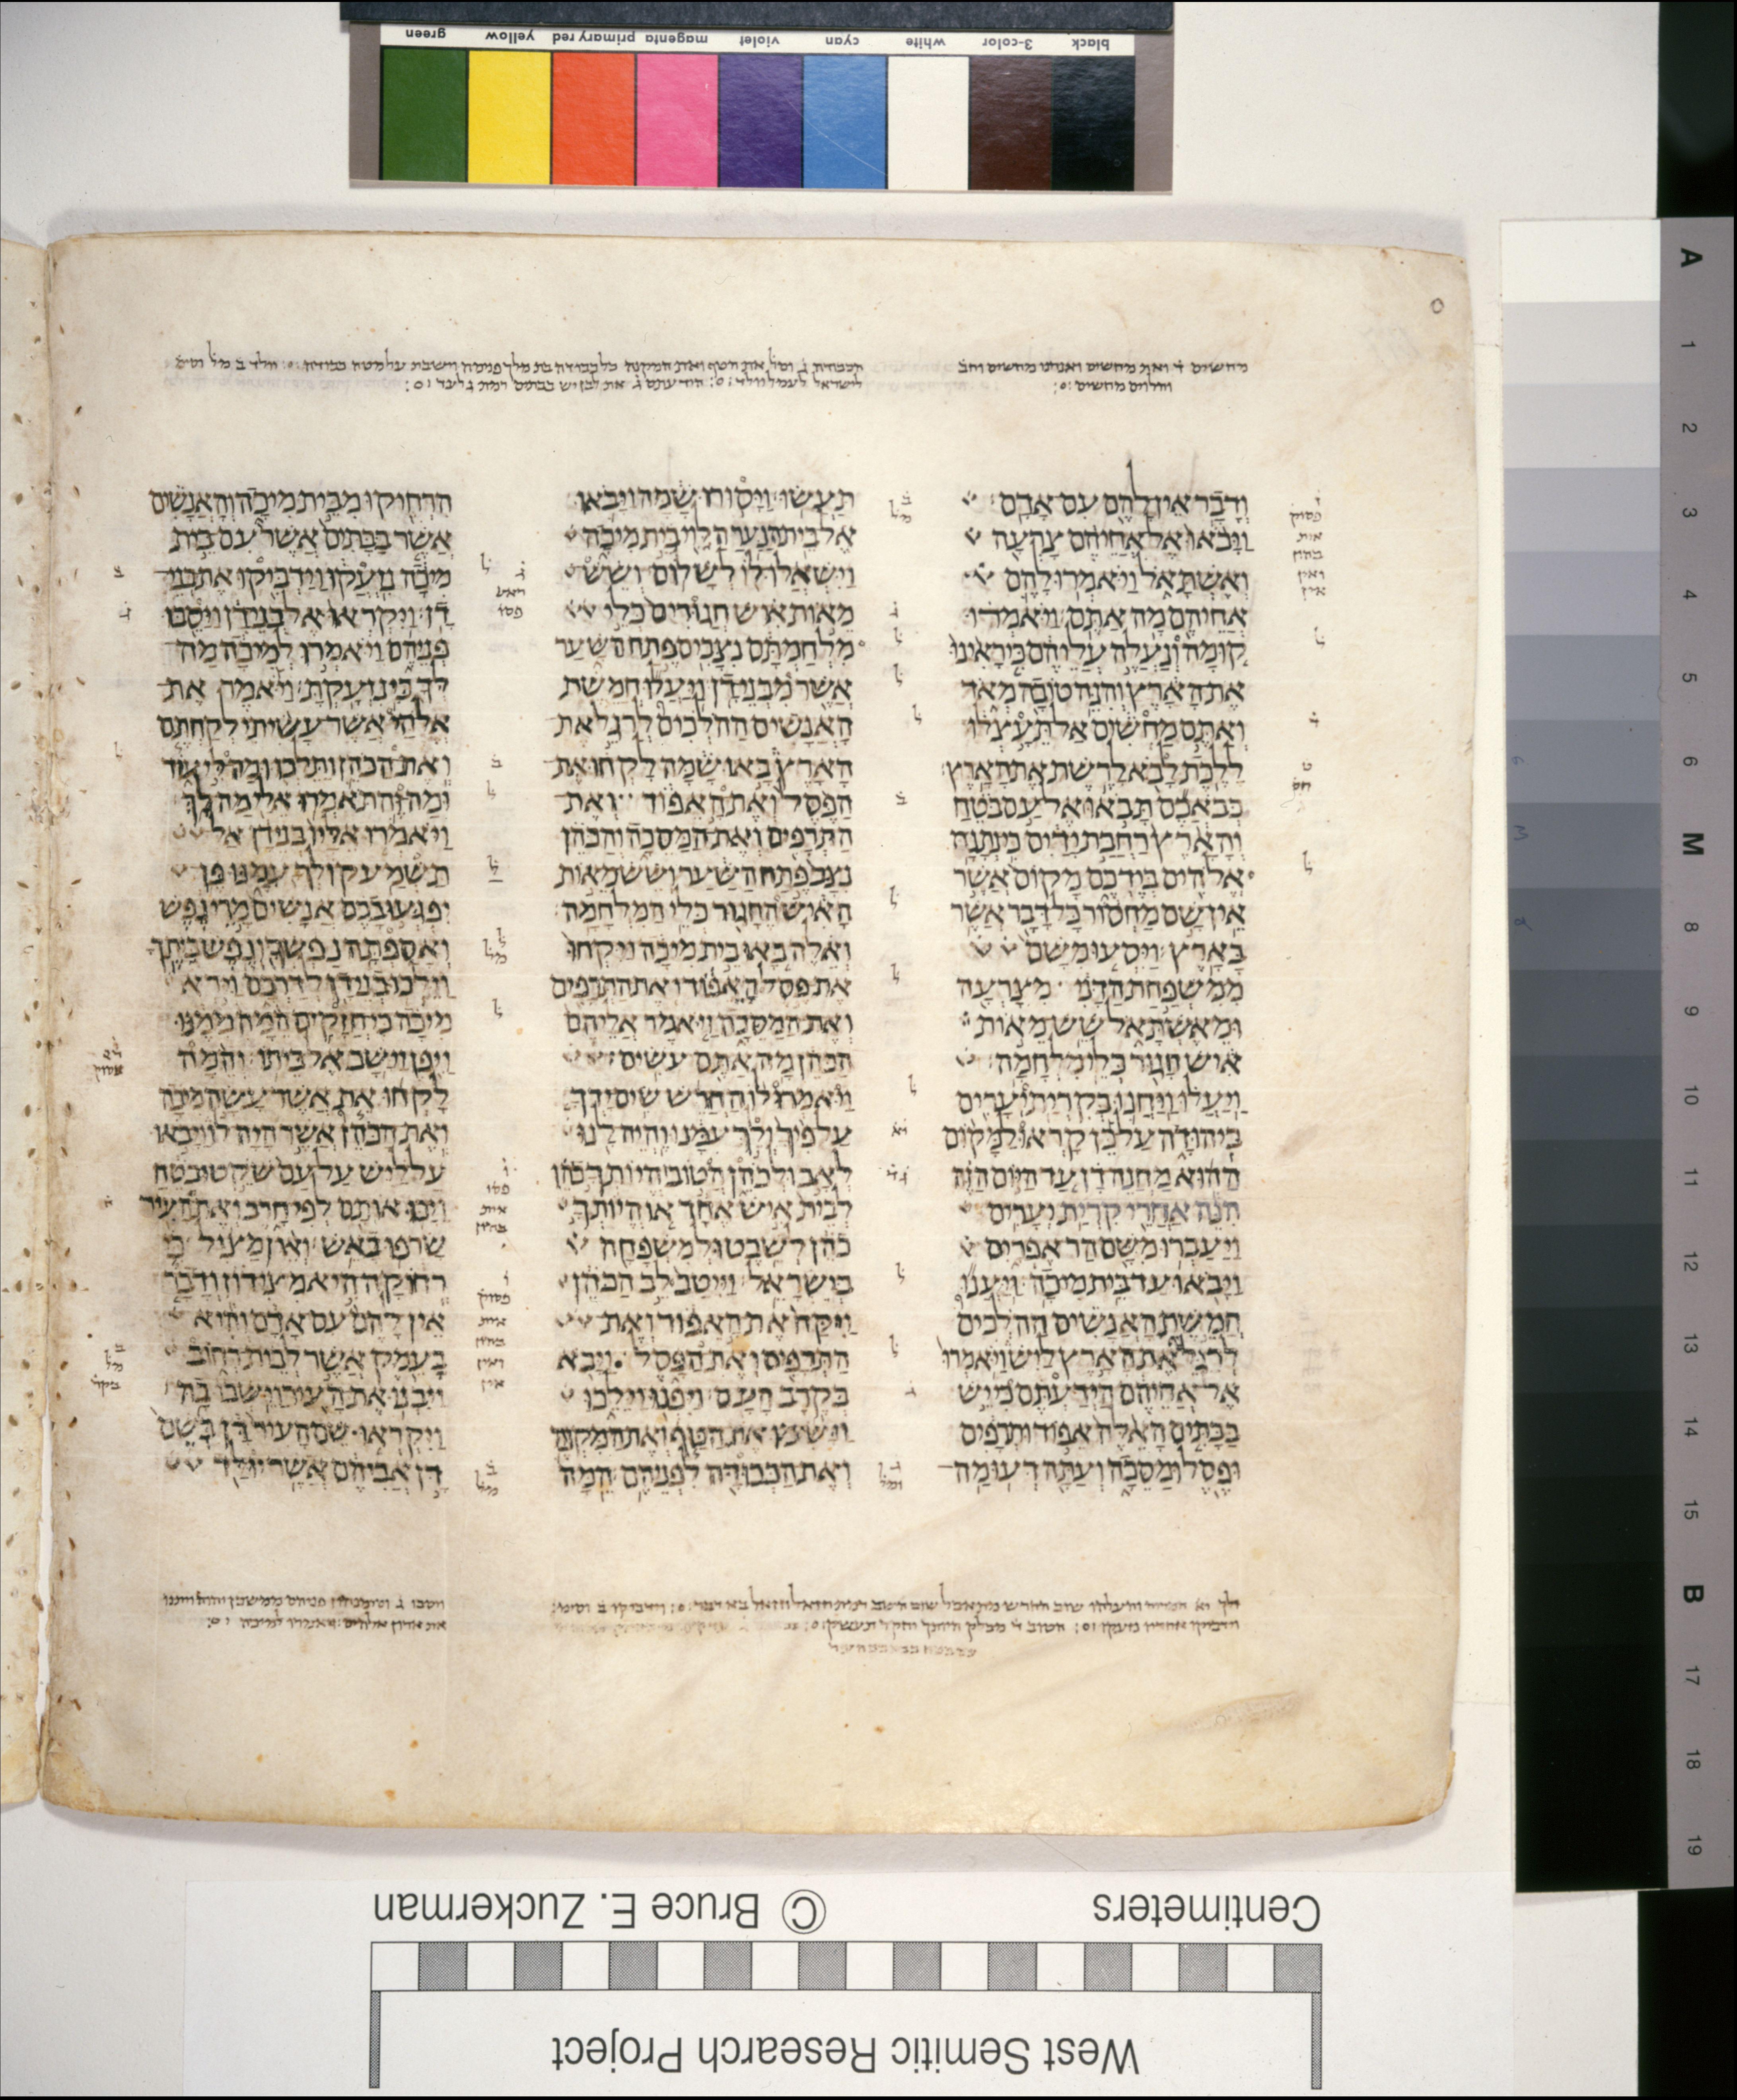 green yellow primary red magenta violet cyan white 3-color black
מחשים ד ואתם מחשים ואנחנו מחשים
הכבודה ואת הטף ואת המקנה כל כבודה בת מלך פנימה וישבת על מטה כבודה
ודבר אין להם עם אדם׃
ויבאו אל אחיהם צרעה
ואשתאל ויאמרו להם
אחיהם מה אתם׃ ויאמרו
קומה ונעלה עליהם כי ראינו
את הארץ והנה טובה מאד
ואתם מחשים אל תעצלו
ללכת לבא לרשת את הארץ׃
כבאכם תבאו אל עם בטח
והארץ רחבת ידים כי נתנה
אלהים בידכם מקום אשר
אין שם מחסור כל דבר אשר
בארץ׃ ויסעו משם
ממשפחת הדני מצרעה
ומאשתאל שש מאות
איש חגור כלי מלחמה׃
ויעלו ויחנו בקרית יערים
ביהודה על כן קראו למקום
ההוא מחנה דן עד היום הזה
הנה אחרי קרית יערים׃
ויעברו משם הר אפרים
ויבאו עד בית מיכה׃ ויענו
חמשת האנשים ההלכים
לרגל את הארץ ליש ויאמרו
אל אחיהם הידעתם כי יש
בבתים האלה אפוד ותרפים
ופסל ומסכה ועתה דעו מה
תעשו׃ ויסורו שמה ויבאו
אל בית הנער הלוי בית מיכה
וישאלו לו לשלום׃ ושש
מאות איש חגורים כלי
מלחמתם נצבים פתח השער
אשר מבני דן׃ ויעלו חמשת
האנשים ההלכים לרגל את
הארץ באו שמה לקחו את
הפסל ואת האפוד ואת
התרפים ואת המסכה והכהן
נצב פתח השער ושש מאות
האיש החגור כלי המלחמה׃
ואלה באו בית מיכה ויקחו
את פסל האפוד ואת התרפים
ואת המסכה ויאמר אליהם
הכהן מה אתם עשים׃
ויאמרו לו החרש שים ידך
על פיך ולך עמנו והיה לנו
לאב ולכהן הטוב היותך כהן
לבית איש אחד או היותך
כהן לשבט ולמשפחה
בישראל׃ וייטב לב הכהן
ויקח את האפוד ואת
התרפים ואת הפסל ויבא
בקרב העם׃ ויפנו וילכו
וישימו את הטף ואת המקנה
ואת הכבודה לפניהם׃ המה
הרחיקו מבית מיכה והאנשים
אשר בבתים אשר עם בית
מיכה נזעקו וידביקו את בני
דן׃ ויקראו אל בני דן ויסבו
פניהם ויאמרו למיכה מה
לך כי נזעקת׃ ויאמר את
אלהי אשר עשיתי לקחתם
ואת הכהן ותלכו ומה לי עוד
ומה זה תאמרו אלי מה לך׃
ויאמרו אליו בני דן אל
תשמע קולך עמנו פן
יפגעו בכם אנשים מרי נפש
ואספתה נפשך ונפש ביתך׃
וילכו בני דן לדרכם וירא
מיכה כי חזקים המה ממנו
ויפן וישב אל ביתו׃ והמה
לקחו את אשר עשה מיכה
ואת הכהן אשר היה לו ויבאו
על ליש על עם שקט ובטח
ויכו אותם לפי חרב ואת העיר
שרפו באש׃ ואין מציל כי
רחוקה היא מצידון ודבר
אין להם עם אדם והיא
בעמק אשר לבית רחוב
ויבנו את העיר וישבו בה׃
ויקראו שם העיר דן בשם
דן אביהם אשר יולד
A 1 2 3 4 5 6 M 8 9 10 11 12 13 14 15 B 17 18 19
Centimeters
© Bruce E. Zuckerman
West Semitic Research Project